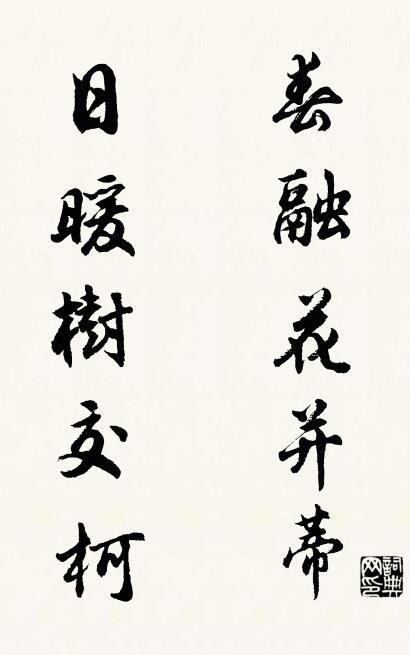 春融花并蒂
日暖樹交柯
詞典网印